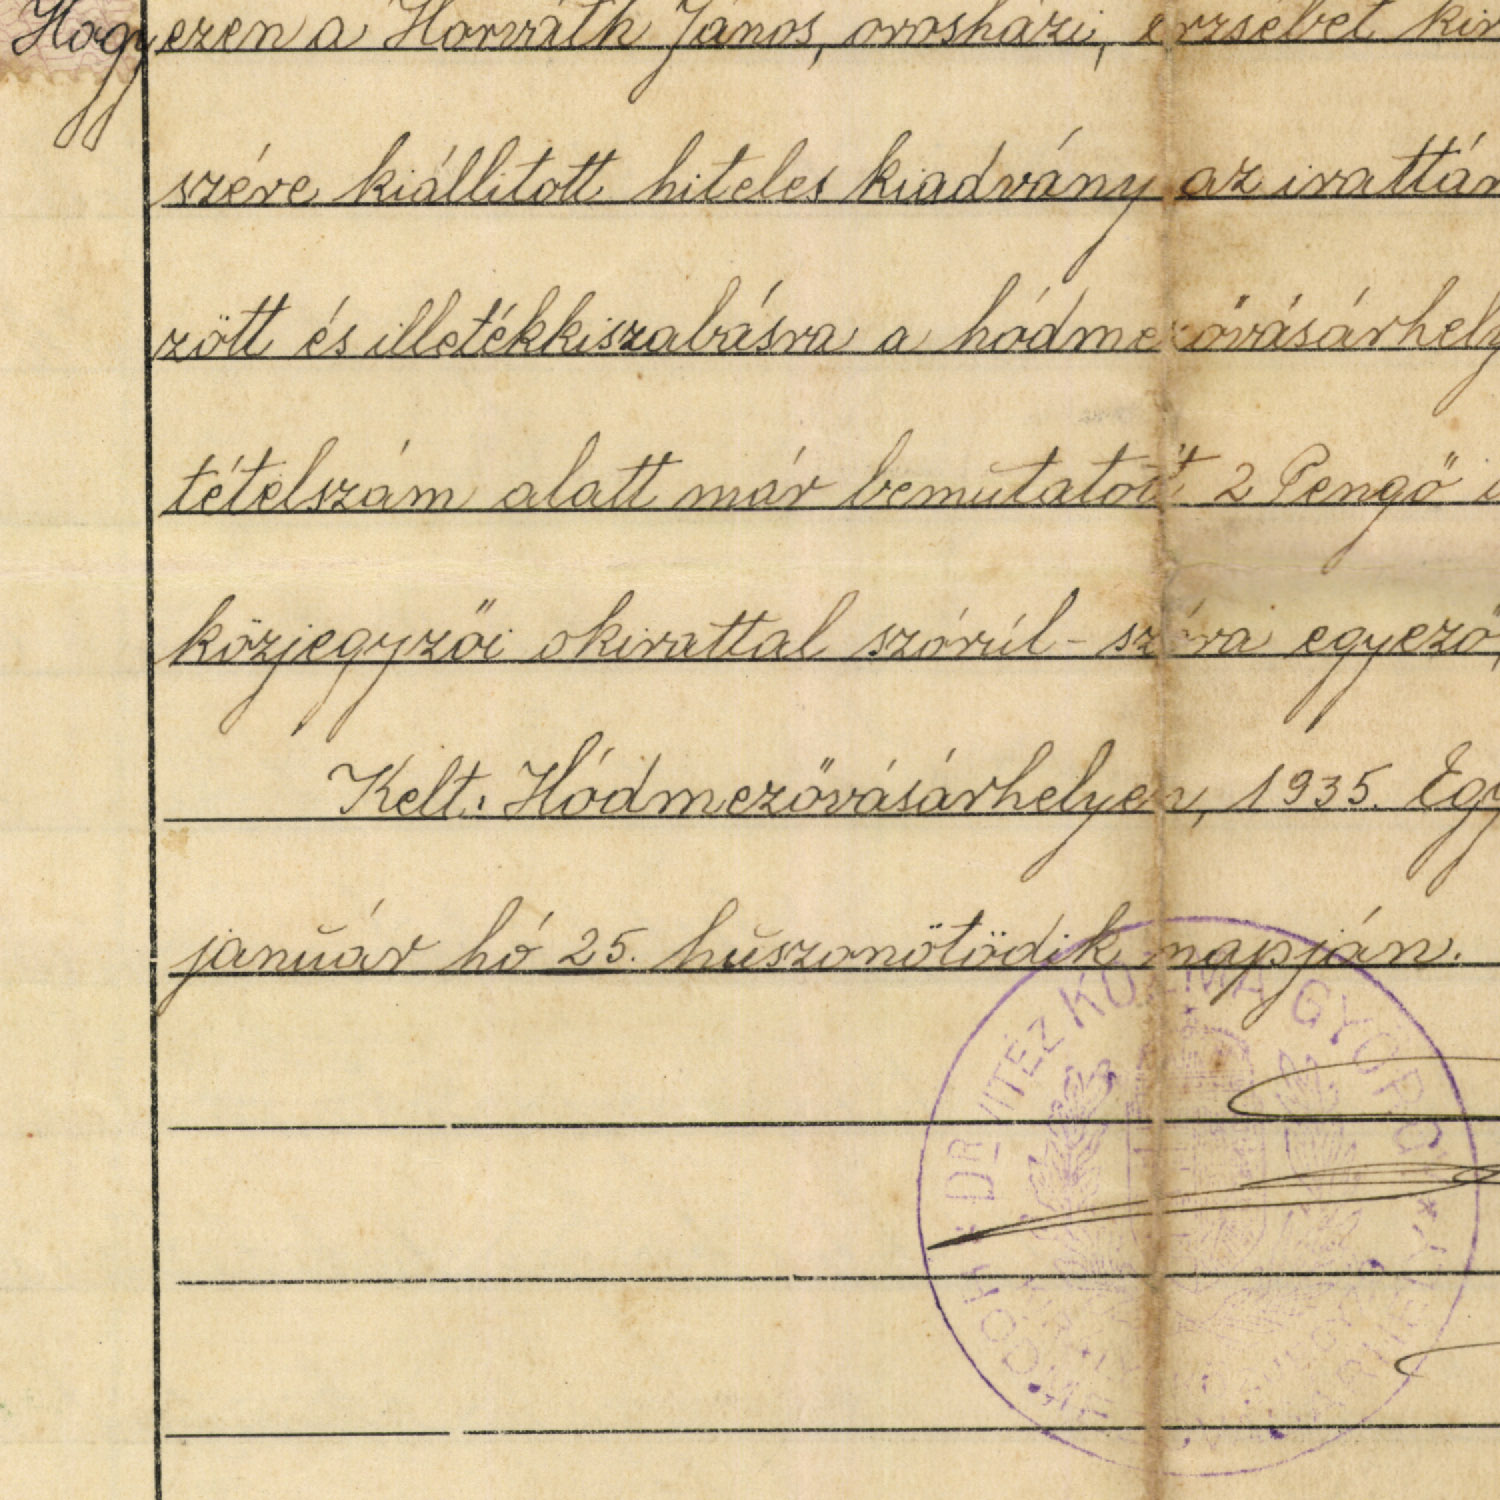 Hogy ezen a Horváth János, orosházi, erzsébet kir
szére kiállitott hiteles kiadvány az irattár
zött és illetékkiszabásra a hódmezővásárhely
tételszám alatt már bemutatott 2 Pengő
közjegyzői okirattal szórúl-szóra egyező,
Kelt: Hódmezővásárhelyen, 1935. Egy
január hó 25. huszonötödik napján.
DR VITÉZ KOZMA GYÖRGY